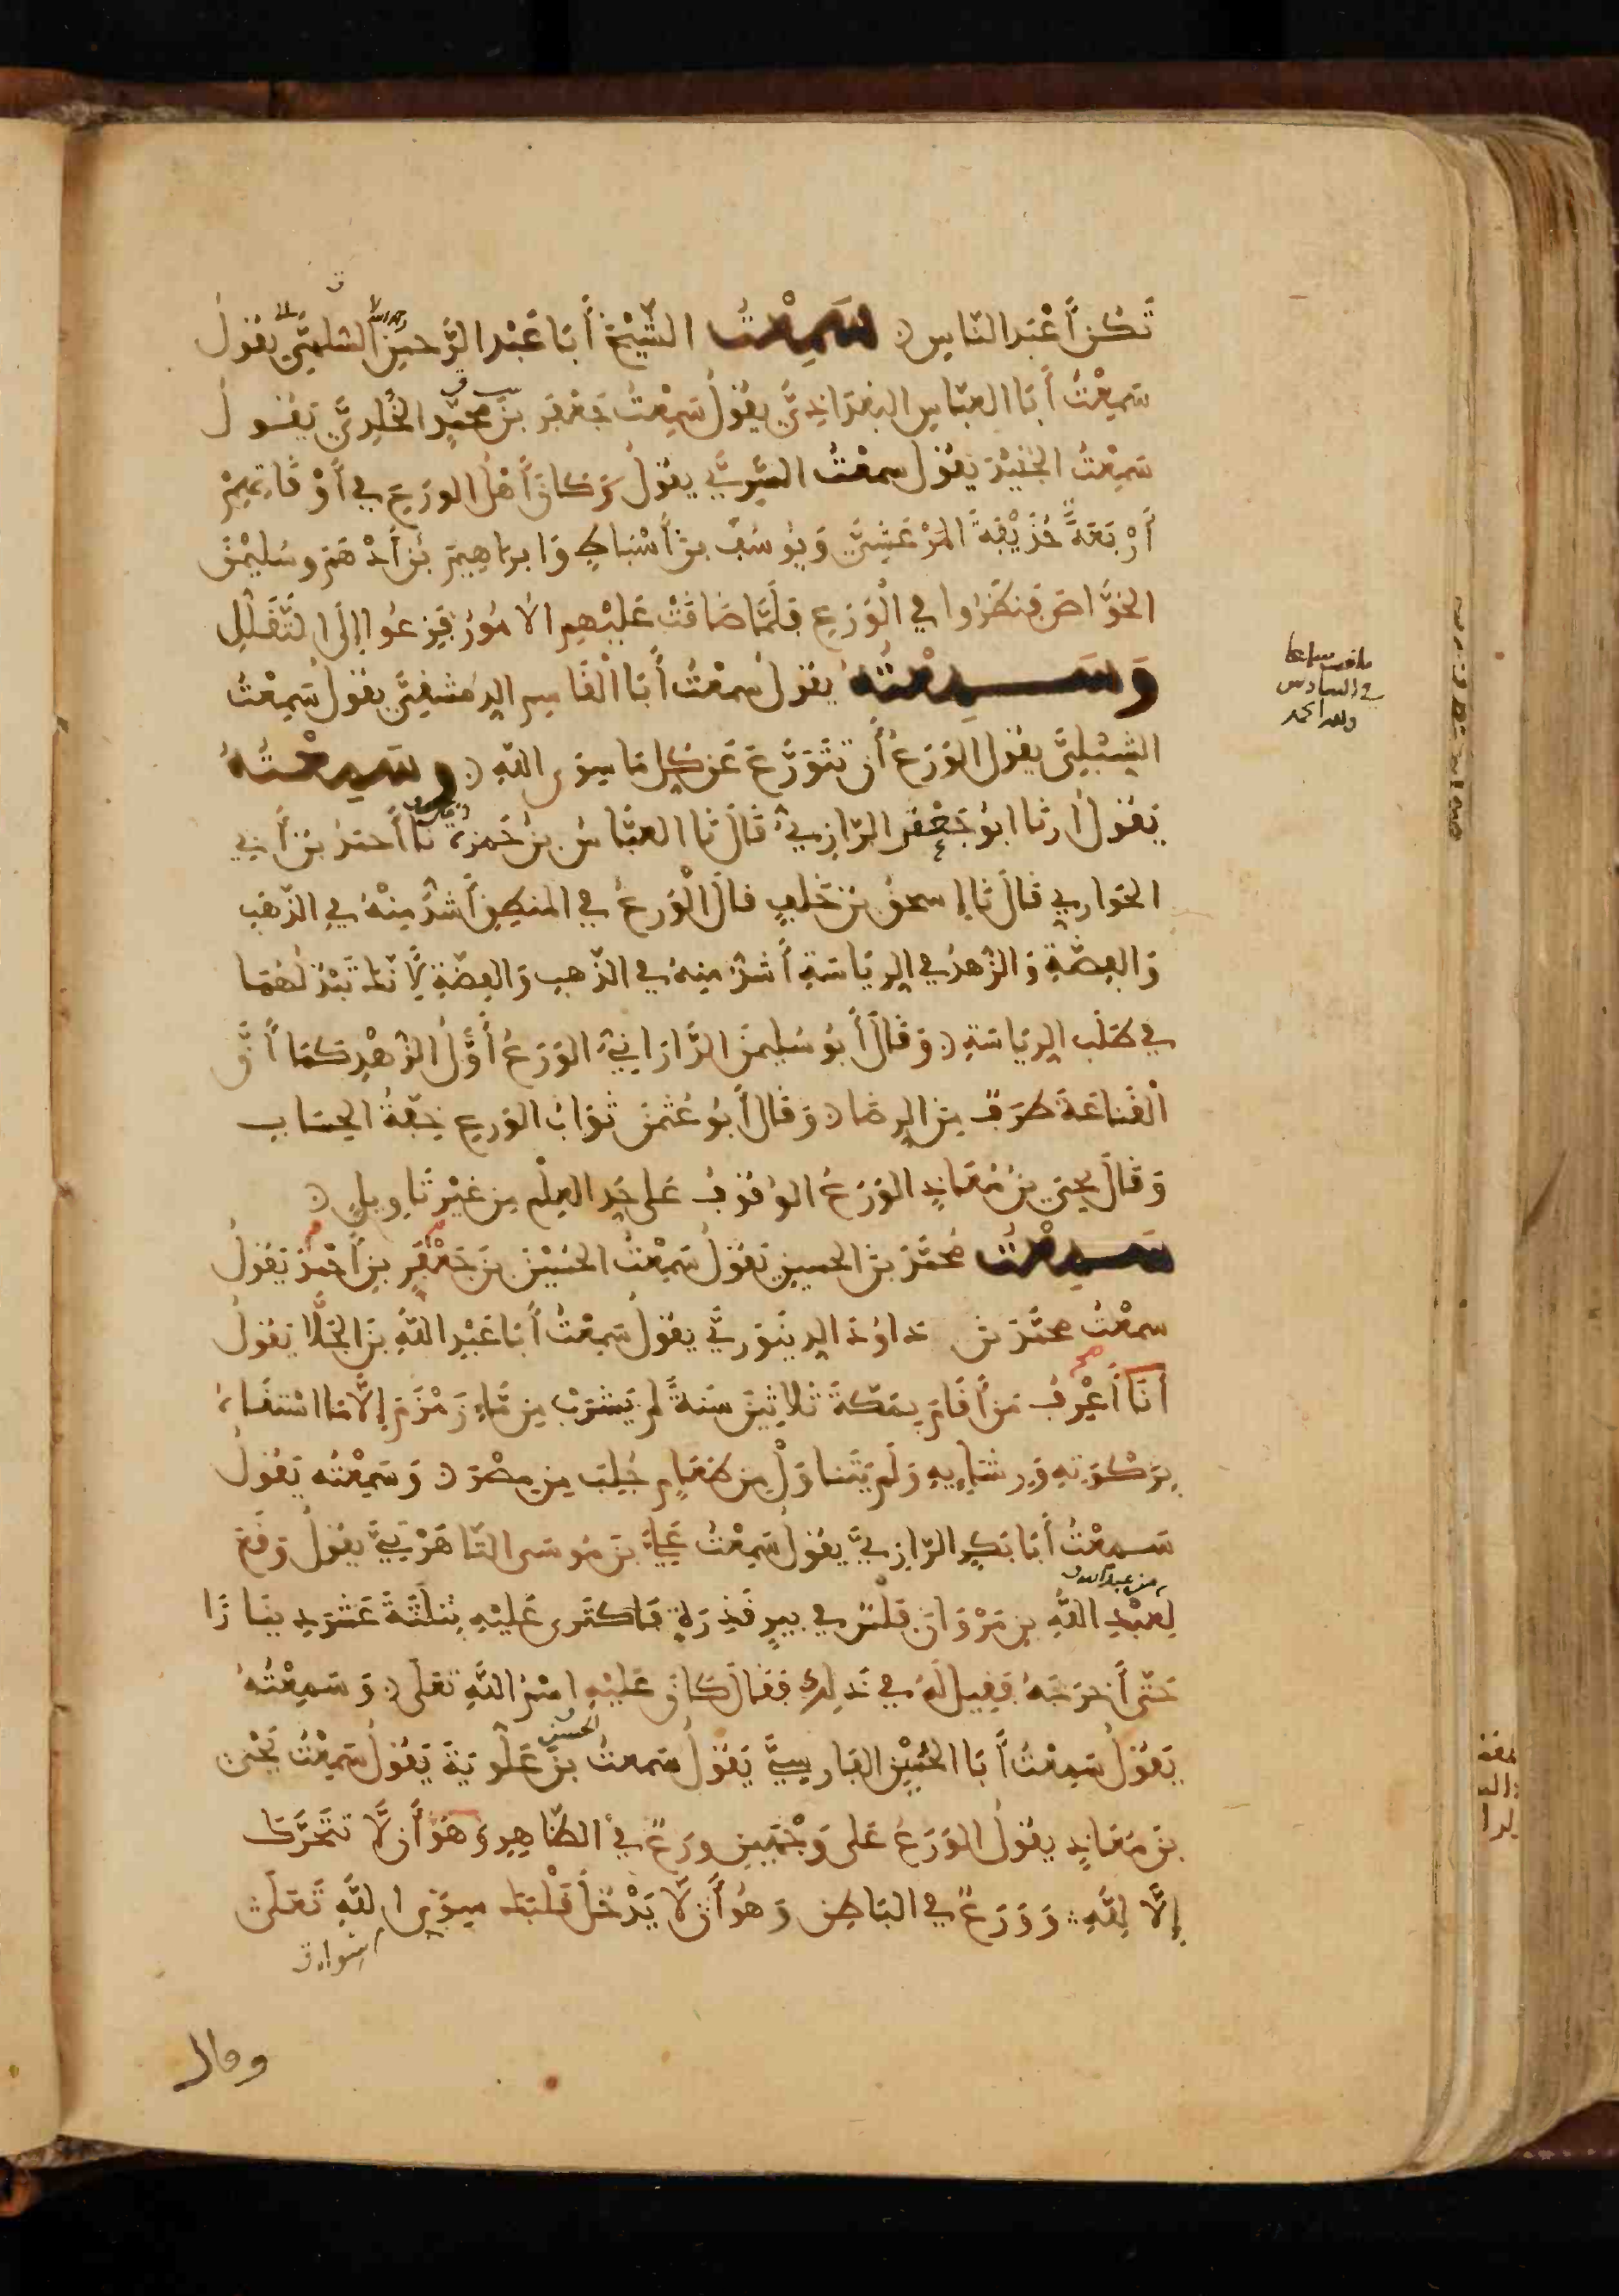 تَكُنْ أَعْبَدَ النَّاسِ سَمِعْتُ الشَّيْخَ أَبَا عَبْدِ الرَّحمنِ السُّلَمِيَّ يقُولُ
سَمِعْتُ أَبَا العبّاسِ البغدَاذِيَّ يقُولُ سَمِعْتُ جَعْفَرَ بنَ محمّدٍ الخُلْدِيَّ يَقُولُ
سَمِعْتُ الجُنَيْدَ يَقُولُ سمعْتُ السَّرِيَّ يقُولُ كَانَ أَهْلُ الورَعِ في أَوْقَاتِهِمْ
أَرْبَعَةً حُذَيْفَةَ المَرْعَشِيَّ وَيُوسُفَ بنَ أَسْبَاطٍ وَابراهِيمَ بْنَ أَدْهَمَ وسُلَيْمنَ
الخوَّاصَ فنَظَرُوا في الْوَرَعِ فلَمَّا ضَاقَتْ عَلَيْهِم الأُمُورُ فَزِعُوا إِلَى التَّقَلُّلِ
وَسَمِعْتُهُ يقولُ سمعْتُ أَبَا الْقَاسِمِ الدِّمَشْقِيَّ يقولُ سَمِعْتُ
الشِّبْلِيَّ يقُولُ الوَرَعُ أَن تَتَوَرَّعَ عَن كُلِّ مَا سِوَى اللهِ وسَمِعْتُهُ
يَقُولُ انا ابُو جَعْفَرٍ الرّازِيُّ قَالَ نا العبَّاسُ بنُ حَمزةَ نا أَحمدُ بنُ أَبي
الحَوارِي قَالَ نا إِسحقُ بنُ خَلَفٍ قالَ الْوَرعُ في المنطِقِ أَشدُّ مِنْهُ في الذّهَبِ
وَالفِضَّةِ وَالزُّهدُ في الرِّيَاسَةِ أَشدُّ مِنهُ في الذّهبِ وَالفِضّةِ لِأَنّكَ تَبْذُلُهُمَا
في طَلَبِ الرِّيَاسَةِ وَقَالَ أَبُو سُلَيمنَ الدَّارَانِيُّ الوَرَعُ أَوَّلُ الزُّهْدِ كَمَا أَنَّ
الْقَناعَةَ طَرَفٌ مِنَ الرِّضَا وَقَالَ أَبُو عُثمنَ ثَوَابُ الوَرعِ خِفَّةُ الحِسَابِ
وَقَالَ يحيَى بنُ مُعَاذٍ الوَرَعُ الوُقُوفُ عَلى حَدِّ العِلْمِ مِن غَيْرِ تَاوِيلٍ
سَمِعْتُ مُحمَّدَ بنَ الحسينِ يَقُولُ سَمِعْتُ الحُسَيْنَ بنَ جَعْفَرِ بنِ أَحْمَدَ يَقُولُ
سمعْتُ محمَّدَ بنَ دَاوُدَ الدِّينَوَرِيَّ يقُولُ سَمِعْتُ أَبَا عَبْدِ اللهِ بنَ الجَلَّا يَقُولُ
أَنَا أَعْرِفُ مَن أَقَامَ بِمَكَّةَ ثَلاثِينَ سَنةً لم يَشْرَبْ مِن مَّاءِ زَمْزَمَ إِلَّا مَا اسْتَقَاهُ
بِرَكْوَتِهِ وَرِشَائِهِ وَلَم يَتَنَاوَلْ مِن طَعَامٍ جُلِبَ مِن مِصْرَ وَسَمِعْتُه يَقُولُ
سَمِعْتُ أَبَا بَكْرٍ الرّازِيَّ يقُولُ سَمِعْتُ عَلِيَّ بنَ مُوسَى التَّاهَرْتِيَّ يقُولُ وَقَعَ
لِعَبْدِ اللهِ بنِ مَرْوَانَ فَلْسٌ في بِيرٍ قَذِرَةٍ فَاكْتَرى عَلَيْهِ بِثَلثَةَ عَشَرَ دِينَارًا
حَتَّى أَخرَجَهُ فقِيلَ لَهُ في ذَلِكَ فَقَالَ كَانَ عَلَيْهِ اسْمُ اللهِ تَعَلَى وَسَمِعْتُهُ
يَقُولُ سَمِعْتُ أَبَا الحُسَيْنِ الفَارِسِيَّ يَقُولُ سَمعتُ بنَ عَلُّويَةَ يَقُولُ سَمِعْتُ يَحْيَى
بنَ مُعَاذٍ يقُولُ الوَرَعُ عَلى وَجْهَيْنِ ورَعٌ فِي الظَّاهِرِ وَهُوَ أَن لَّا تَتَحَرَّكَ
إِلَّا لِلَّهِ وَوَرَعٌ في البَاطِنِ وَهُوَ أَن لَّا يَدْخُلَ قَلْبَكَ سِوَى اللهِ تَعَلَى
وقال
بلغت سماعا
في السادس
ولله الحمد
الحسن